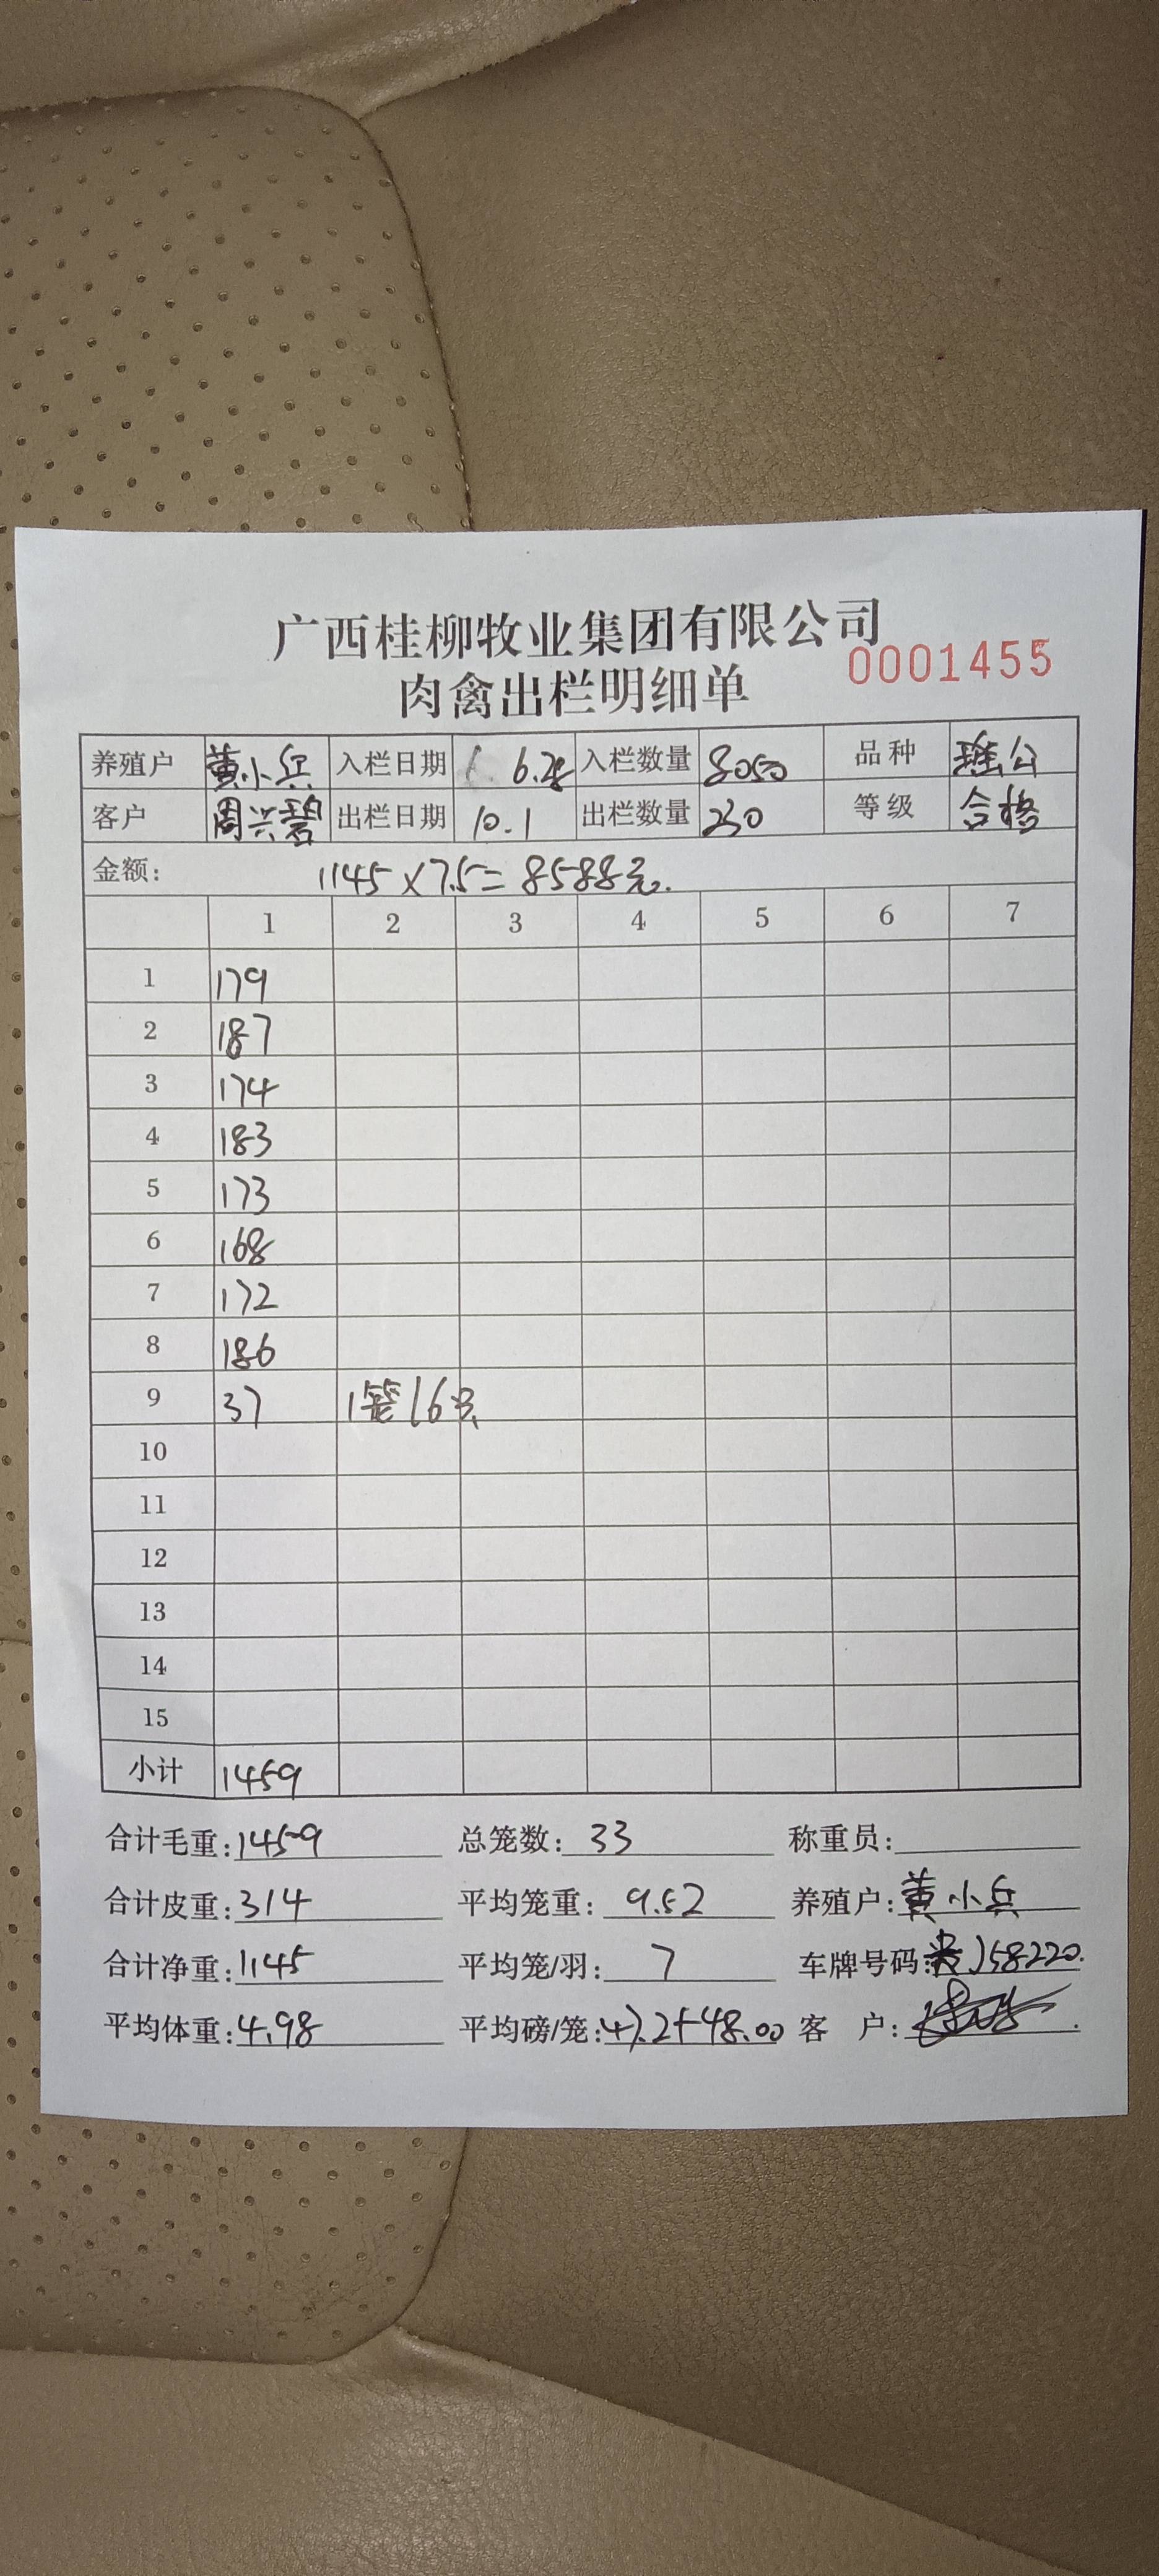 广西桂柳牧业集团有限公司
0001455
肉禽出栏明细单
养殖户 黄小兵 入栏日期 6.28 入栏数量 8050 品种 瑶公
客户 周兴碧 出栏日期 10.1 出栏数量 230 等级 合格
金额: 1145×7.5=8588元.
1 2 3 4 5 6 7
1 179
2 187
3 174
4 183
5 173
6 168
7 172
8 186
9 37 1笼16只
10
11
12
13
14
15
小计 1459
合计毛重:1459 总笼数: 33 称重员:
合计皮重:314 平均笼重: 9.52 养殖户:黄小兵
合计净重:1145 平均笼/羽: 7 车牌号码:贵J58220.
平均体重:4.98 平均磅/笼:47.2+48.00 客 户: